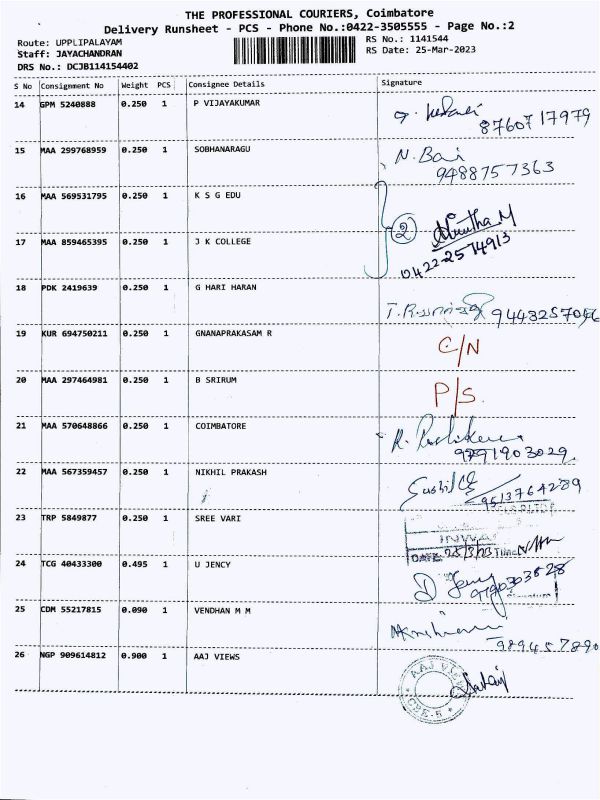 THE PROFESSIONAL COURIERS, Coimbatore
Delivery Runsheet - PCS - Phone No.:0422-3505555 - Page No.:2
Route: UPPLIPALAYAM
Staff: JAYACHANDRAN
DRS No.: DCJB114154402
RS No.: 1141544
RS Date: 25-Mar-2023
S No Consignment No Weight PCS Consignee Details Signature
14 GPM 5240888 0.250 1 P VIJAYAKUMAR
8760717979
15 MAA 299768959 0.250 1 SOBHANARAGU N. Bai
9488757363
16 MAA 569531795 0.250 1 K S G EDU
2
17 MAA 859465395 0.250 1 J K COLLEGE
0422-2574913
18 PDK 2419639 0.250 1 G HARI HARAN
19 KUR 694750211 0.250 1 GNANAPRAKASAM R C/N
20 MAA 297464981 0.250 1 B SRIRUM P/S
21 MAA 570648866 0.250 1 COIMBATORE
9791903029
22 MAA 567359457 0.250 1 NIKHIL PRAKASH
9513764289
23 TRP 5849877 0.250 1 SREE VARI
INWA
DATE 25/3/23
24 TCG 40433300 0.495 1 U JENCY
D Jency
25 CDM 55217815 0.090 1 VENDHAN M M
26 NGP 909614812 0.900 1 AAJ VIEWS
AAJ View
CBE-5